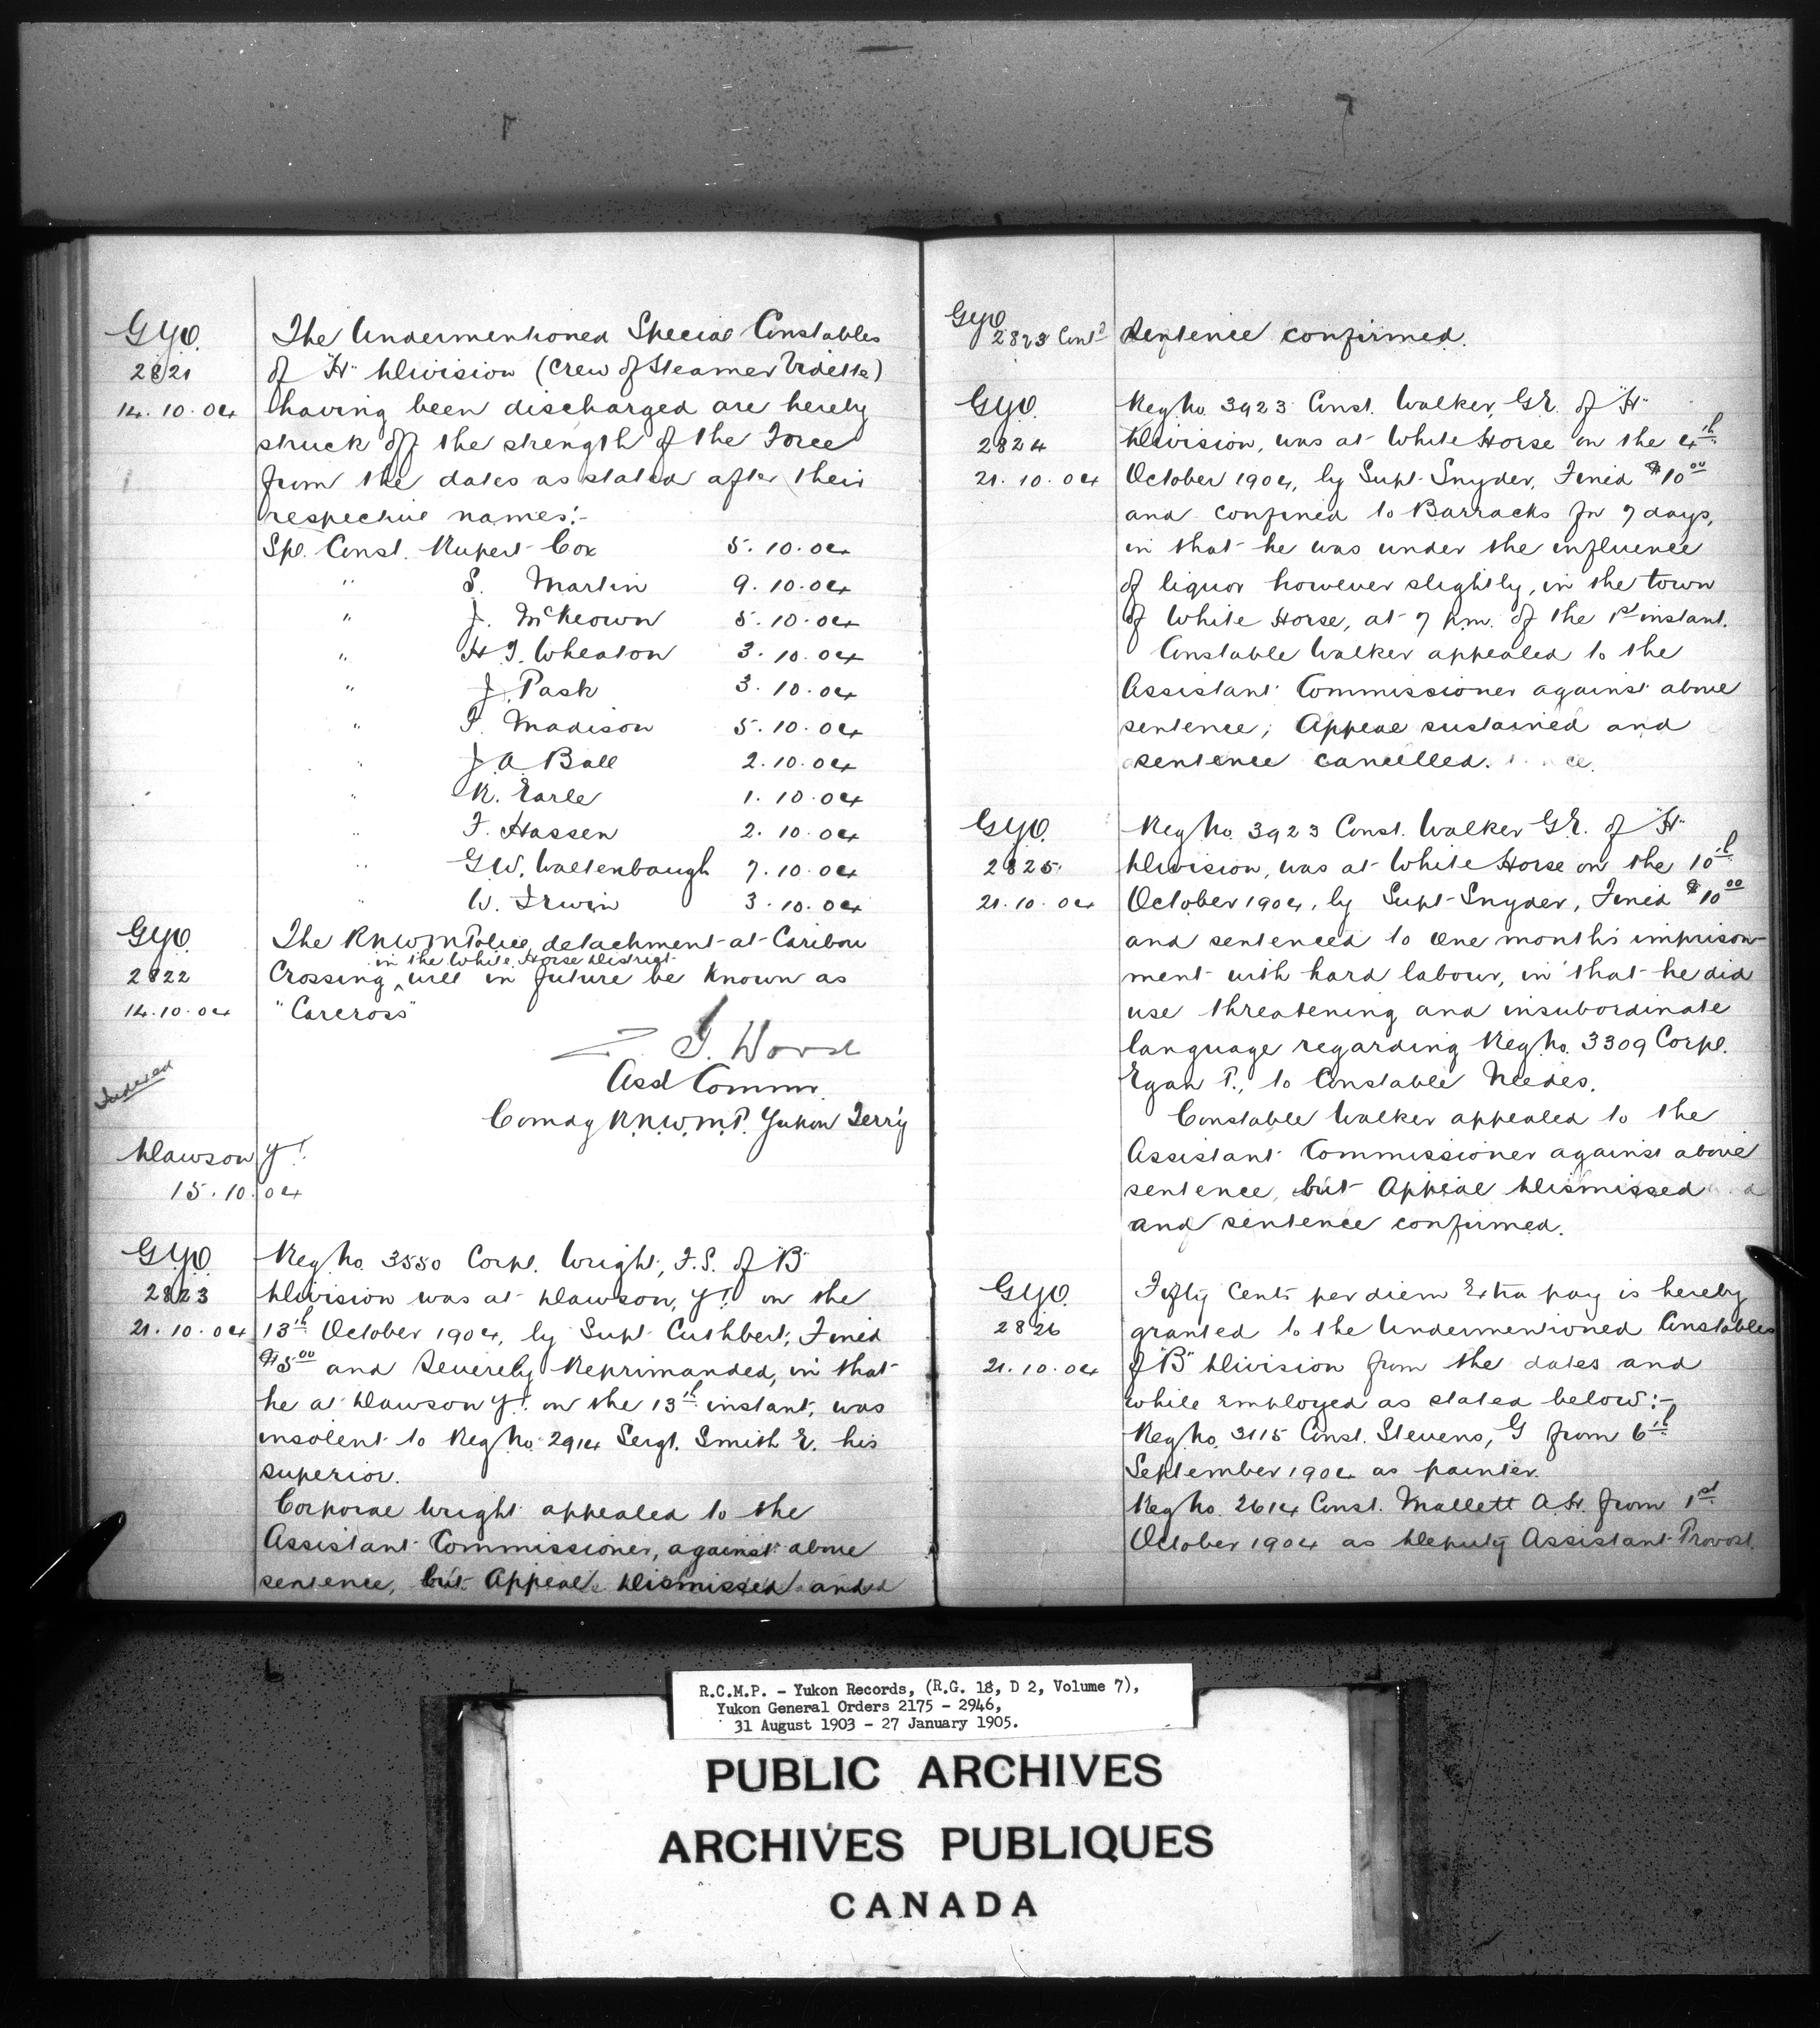 G.Y.O.
2821
14.10.04
The Undermentioned Special Constables
of "H" Division (Crew of Steamer Vidette)
having been discharged are hereby
struck off the strength of the Force
from the dates as stated after their
respective names:-
Spl. Const. Rupert Cox 5.10.04
" S. Martin 9.10.04
" J. McKeown 5.10.04
" H.J. Wheaton 3.10.04
" J. Pask 3.10.04
" P. Madison 5.10.04
" J.A. Ball 2.10.04
" R. Earle 1.10.04
" F. Hassen 2.10.04
" G.W. Waltenbaugh 7.10.04
" W. Irwin 3.10.04
G.Y.O.
2822
14.10.04
The R.N.W.M. Police, detachment at Caribou
in the White Horse District
Crossing ^ will in future be known as
"Carcross"
Z. T. Wood
Asst Commr.
Comdg R.N.W.M.P. Yukon Terr'y
Indexed
Dawson Y.T.
15.10.04
G.Y.O.
2823
21.10.04
Reg No. 3550 Corpl. Wright, F.S. of "B"
Division was at Dawson, Y.T. on the
13th October 1904, by Supt Cuthbert, Fined
$5.00 and Severely Reprimanded, in that
he at Dawson Y.T. on the 13th instant, was
insolent to Reg No. 2914 Sergt. Smith E. his
superior.
Corporal Wright appealed to the
Assistant Commissioner, against above
sentence, but Appeal Dismissed and
G.Y.O.
2823 Cont'd
Sentence confirmed.
G.Y.O.
2824
21.10.04
Reg No. 3923 Const. Walker, G.E. of "H"
Division, was at White Horse on the 4th
October 1904, by Supt Snyder, Fined $10.00
and confined to Barracks for 7 days,
in that he was under the influence
of liquor however slightly, in the town
of White Horse, at 7 p.m. of the 1st instant.
Constable Walker appealed to the
Assistant Commissioner against above
sentence; Appeal sustained and
sentence cancelled.
G.Y.O.
2825
21.10.04
Reg No. 3923 Const. Walker G.E. of "H"
Division, was at White Horse on the 10th
October 1904, by Supt Snyder, Fined $10.00
and sentenced to One months imprison-
ment with hard labour, in that he did
use threatening and insubordinate
language regarding Reg No. 3309 Corpl.
Egan P., to Constable Needes.
Constable Walker appealed to the
Assistant Commissioner against above
sentence, but Appeal Dismissed
and sentence confirmed.
G.Y.O.
2826
21.10.04
Fifty Cents per diem Extra pay is hereby
granted to the Undermentioned Constables
of "B" Division from the dates and
while employed as stated below:-
Reg No. 3115 Const. Stevens, G from 6th
September 1904 as painter.
Reg No. 2614 Const. Mallett A.H. from 1st
October 1904 as Deputy Assistant Provost.
R.C.M.P. - Yukon Records, (R.G. 18, D 2, Volume 7),
Yukon General Orders 2175 - 2946,
31 August 1903 - 27 January 1905.
PUBLIC ARCHIVES
ARCHIVES PUBLIQUES
CANADA